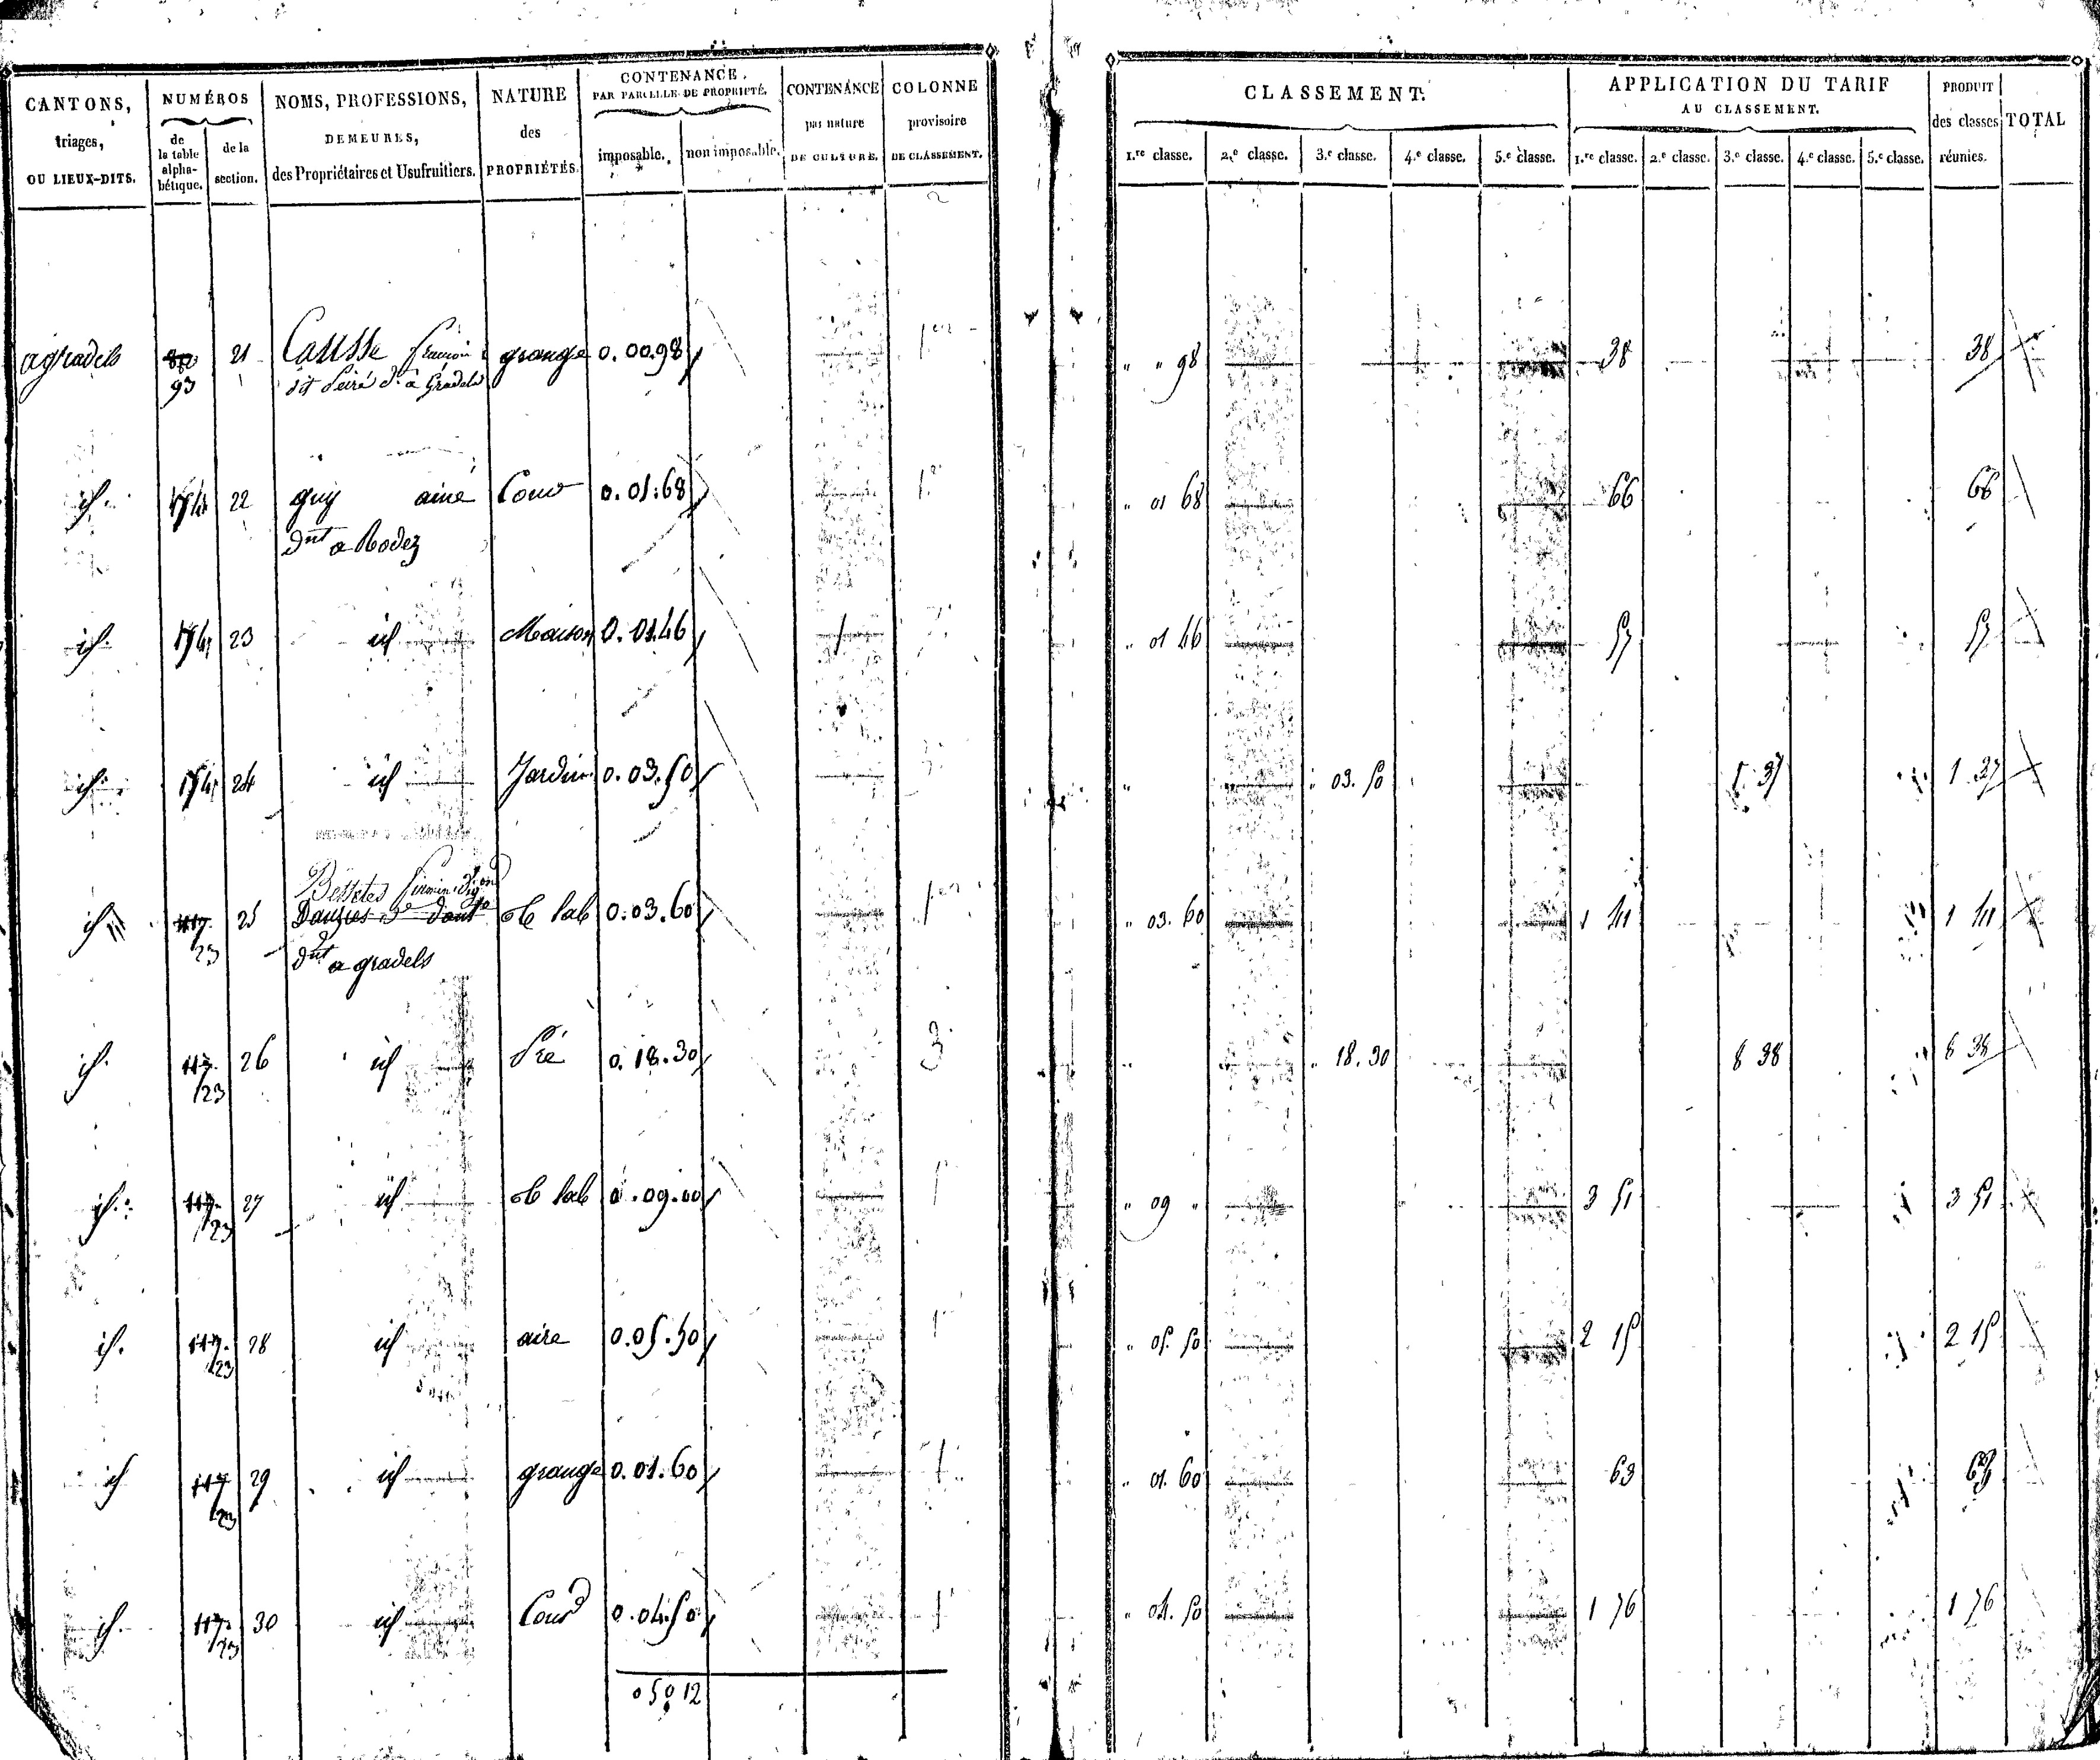 CANTONS,
triages,
OU LIEUX-DITS.
NUMÉROS
de
la table
alpha-
bétique.
de la
section.
NOMS, PROFESSIONS,
DEMEURES,
des Propriétaires et Usufruitiers.
NATURE
des
PROPRIÉTÉS.
CONTENANCE,
PAR PARCELLE DE PROPRIÉTÉ.
imposable.
non imposable.
CONTENANCE
par nature
DE CULTURE.
COLONNE
provisoire
DE CLASSEMENT.
CLASSEMENT.
1.re classe. 2.e classe. 3.e classe. 4.e classe. 5.e classe.
APPLICATION DU TARIF
AU CLASSEMENT.
1.re classe. 2.e classe. 3.e classe. 4.e classe. 5.e classe.
PRODUIT
des classes
réunies.
TOTAL
agradels 21 Causse grange 0.00.98 " " 98 38 38
93 à Gradels
id. 174 22 guy ainé Cour 0.01.68 " 01 68 66 66
dnt a Rodez
id. 174 23 id Maison 0.01.46 " 01 46 57 57
id. 174 24 id Jardin 0.03.50 " 03.50 1.37 1 37
firmin
id 117 25 Dauzies lab 0.03.60 1er " 03.60 1 41 1 41
123 dnt a gradels
id. 117 26 id Pré 0.18.30 3 " 18.30 8 38 8 38
123
id. 117 27 id lab 0.09.00 " 09 " 3 51 3 51
123
id. 117 28 id aire 0.05.50 " 05.50 2 15 2 15
123
id 117 29 id grange 0.01.60 " 01.60 63 63
123
id. 117 30 id Cour 0.04.50 " 04.50 1 76 1 76
123
0 50 12